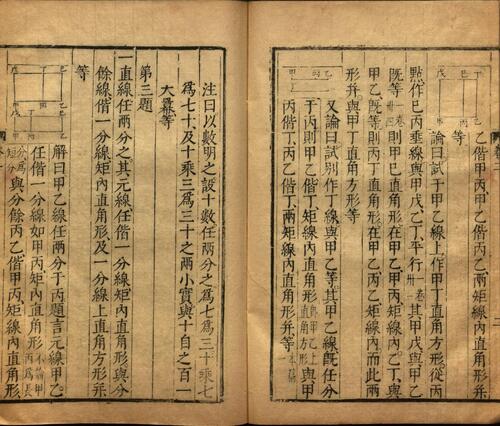 乙偕甲丙甲乙偕丙乙兩矩線內直角形幷
等
論曰試于甲乙線上作甲丁直角方形從丙
點作己丙垂線與甲戊乙丁平行一卷卅一其甲戊與甲乙
既等一卷卅四則甲己直角形在甲乙甲丙矩線內乙丁與
甲乙既等則丙丁直角形在甲乙丙乙矩線內而此兩
形幷與甲丁直角方形等
又論曰試別作丁線與甲乙等其甲乙線既任分
于丙則甲乙偕丁矩線內直角形即甲乙上直角方形與甲
丙偕丁丙乙偕丁兩矩線內直角形幷等本篇一
注曰以數明之設十數任兩分之爲七爲三十乘七
爲七十及十乘三爲三十之兩小實與十自之百一
大冪等
第三題
一直線任兩分之其元線任偕一分線矩內直角形與分
餘線偕一分線矩內直角形及一分線上直角方形幷
等
解曰甲乙線任兩分于丙題言元線甲乙
任偕一分線如甲丙矩內直角形不論甲丙爲長
分爲短分與分餘丙乙偕甲丙矩線內直角形